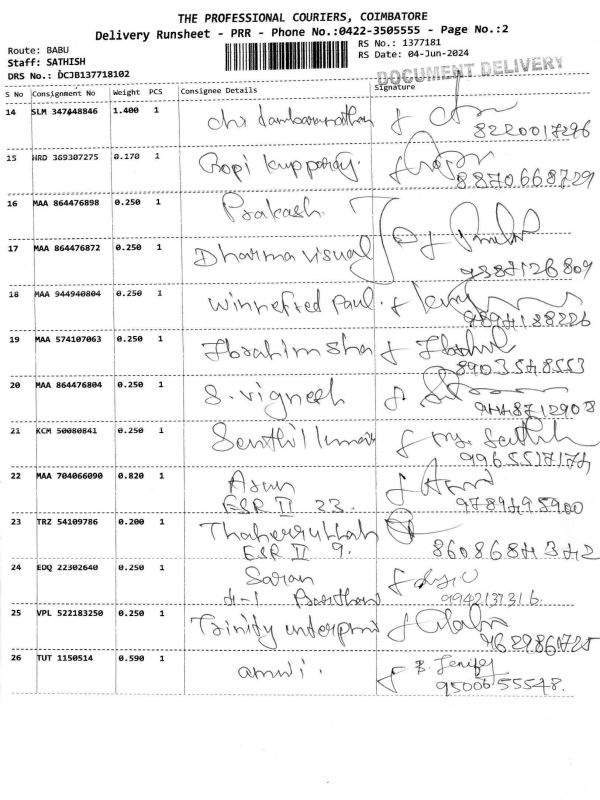 THE PROFESSIONAL COURIERS, COIMBATORE
Delivery Runsheet - PRR - Phone No.:0422-3505555 - Page No.:2
Route: BABU RS No.: 1377181
Staff: SATHISH RS Date: 04-Jun-2024
DRS No.: DCJB137718102
DOCUMENT DELIVERY
S No Consignment No Weight PCS Consignee Details Signature
14 SLM 347448846 1.400 1
8220017296
15 HRD 369307275 0.170 1 Gopi kupparaj.
8870668729
16 MAA 864476898 0.250 1 Prakash
17 MAA 864476872 0.250 1 Dharma visual
9387126809
18 MAA 944940804 0.250 1 Winnefred Paul.
9894188226
19 MAA 574107063 0.250 1 Ibrahimsha
8903548553
20 MAA 864476804 0.250 1 S. vignesh
9448712908
21 KCM 50080841 0.250 1 Senthil kumar
22 MAA 704066090 0.820 1 Arun
ESR II 23.
23 TRZ 54109786 0.200 1
ESR II 9. 8608684342
24 EDQ 22302640 0.250 1 Saran
9942137316.
25 VPL 522183250 0.250 1 Trinity
26 TUT 1150514 0.590 1 B. Jenifer
9500655548.